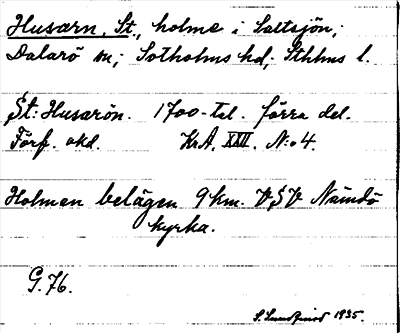 Husarn, St., holme i Saltsjön;
Dalarö sn; Sotholms hd; Sthlms l.
St: Husarön. 1700-tal. förra del.
Förf. okd. Kr.A. XXVI. N:o 4.
Holmen belägen 9 km. VSV Nämdö
kyrka.
G. 76.
S. 1935.